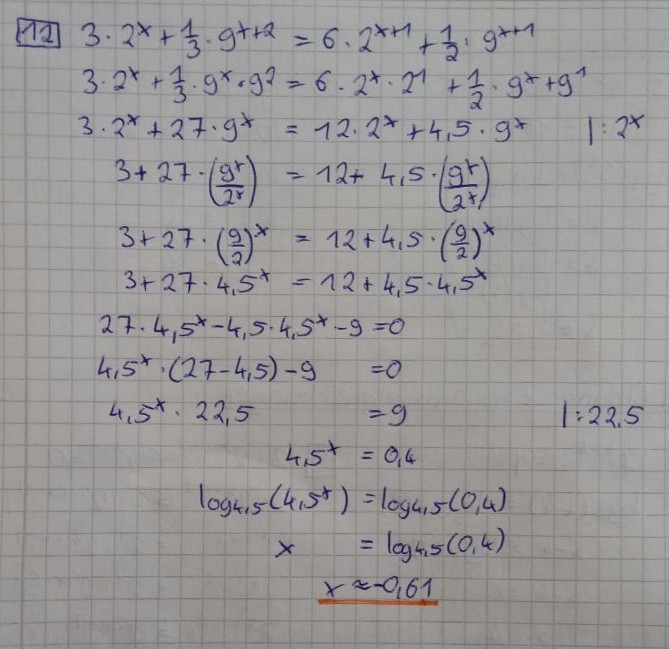 12 3·2ˣ + 1/3·9ˣ⁺² = 6·2ˣ⁺¹ + 1/2·9ˣ⁺¹
3·2ˣ + 1/3·9ˣ·9² = 6·2ˣ·2¹ + 1/2·9ˣ+9¹
3·2ˣ + 27·9ˣ = 12·2ˣ + 4,5·9ˣ |:2ˣ
3 + 27·(9ˣ/2ˣ) = 12 + 4,5·(9ˣ/2ˣ)
3 + 27·(9/2)ˣ = 12 + 4,5·(9/2)ˣ
3 + 27·4,5ˣ = 12 + 4,5·4,5ˣ
27·4,5ˣ - 4,5·4,5ˣ - 9 = 0
4,5ˣ·(27 - 4,5) - 9 = 0
4,5ˣ·22,5 = 9 |:22,5
4,5ˣ = 0,4
log₄,₅(4,5ˣ) = log₄,₅(0,4)
x = log₄,₅(0,4)
x ≈ -0,61